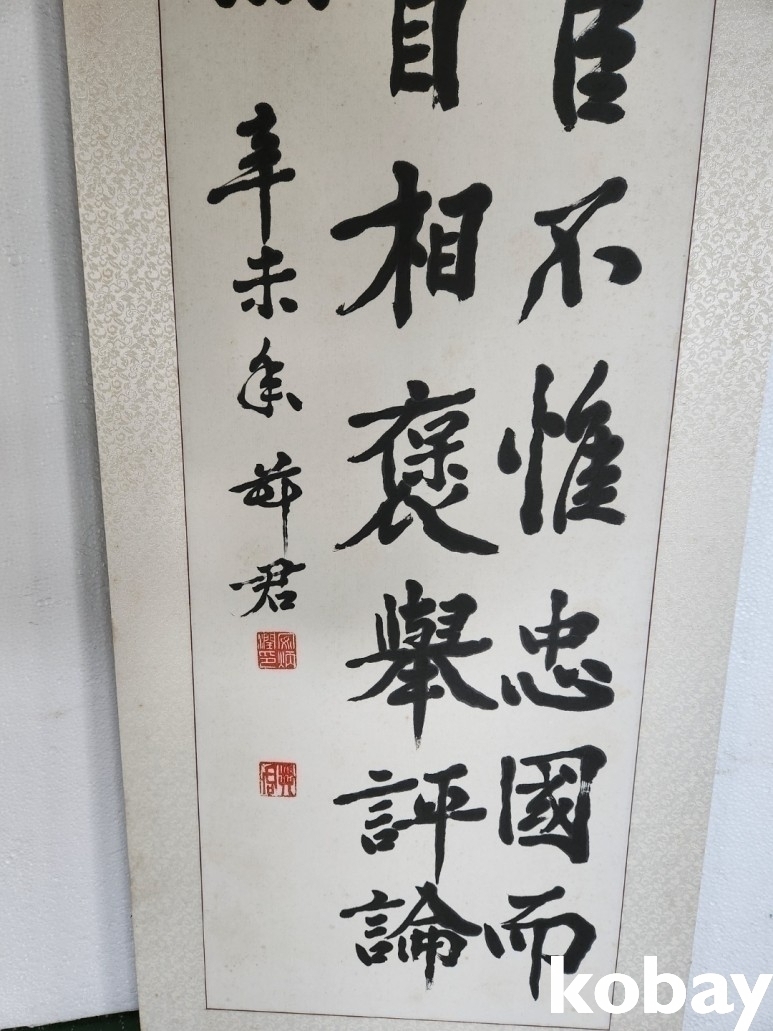 不惟忠國而
相褒舉評論
辛未 君
kobay